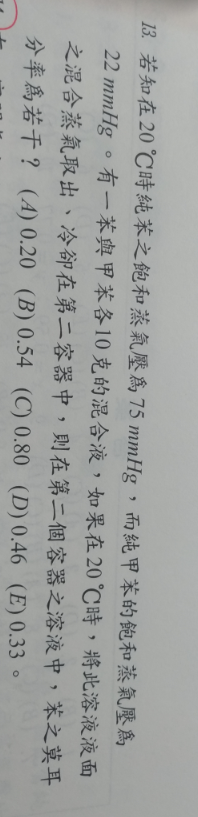 13. 若知在20℃時純苯之飽和蒸氣壓為75 mmHg，而純甲苯的飽和蒸氣壓為
22 mmHg。有一苯與甲苯各10克的混合液，如果在20℃時，將此溶液液面
之混合蒸氣取出、冷卻在第二容器中，則在第二個容器之溶液中，苯之莫耳
分率為若干？ (A) 0.20 (B) 0.54 (C) 0.80 (D) 0.46 (E) 0.33。